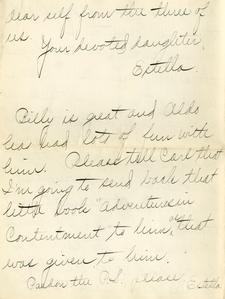 dear self from the three of
us.
Your devoted daughter,
Estella.
Billy is great and Aldo
has had lots of fun with
him. Please tell Carl that
I'm going to send back that
little book "Adventures in
Contentment to him," that
was given to him.
Pardon the P.S. please. Estella